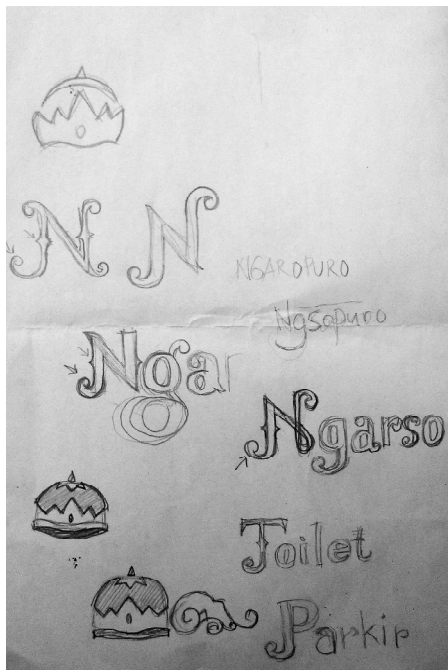 N N
NGAROPURO
Ngsopuro
Ngar
Ngarso
Toilet
Parkir